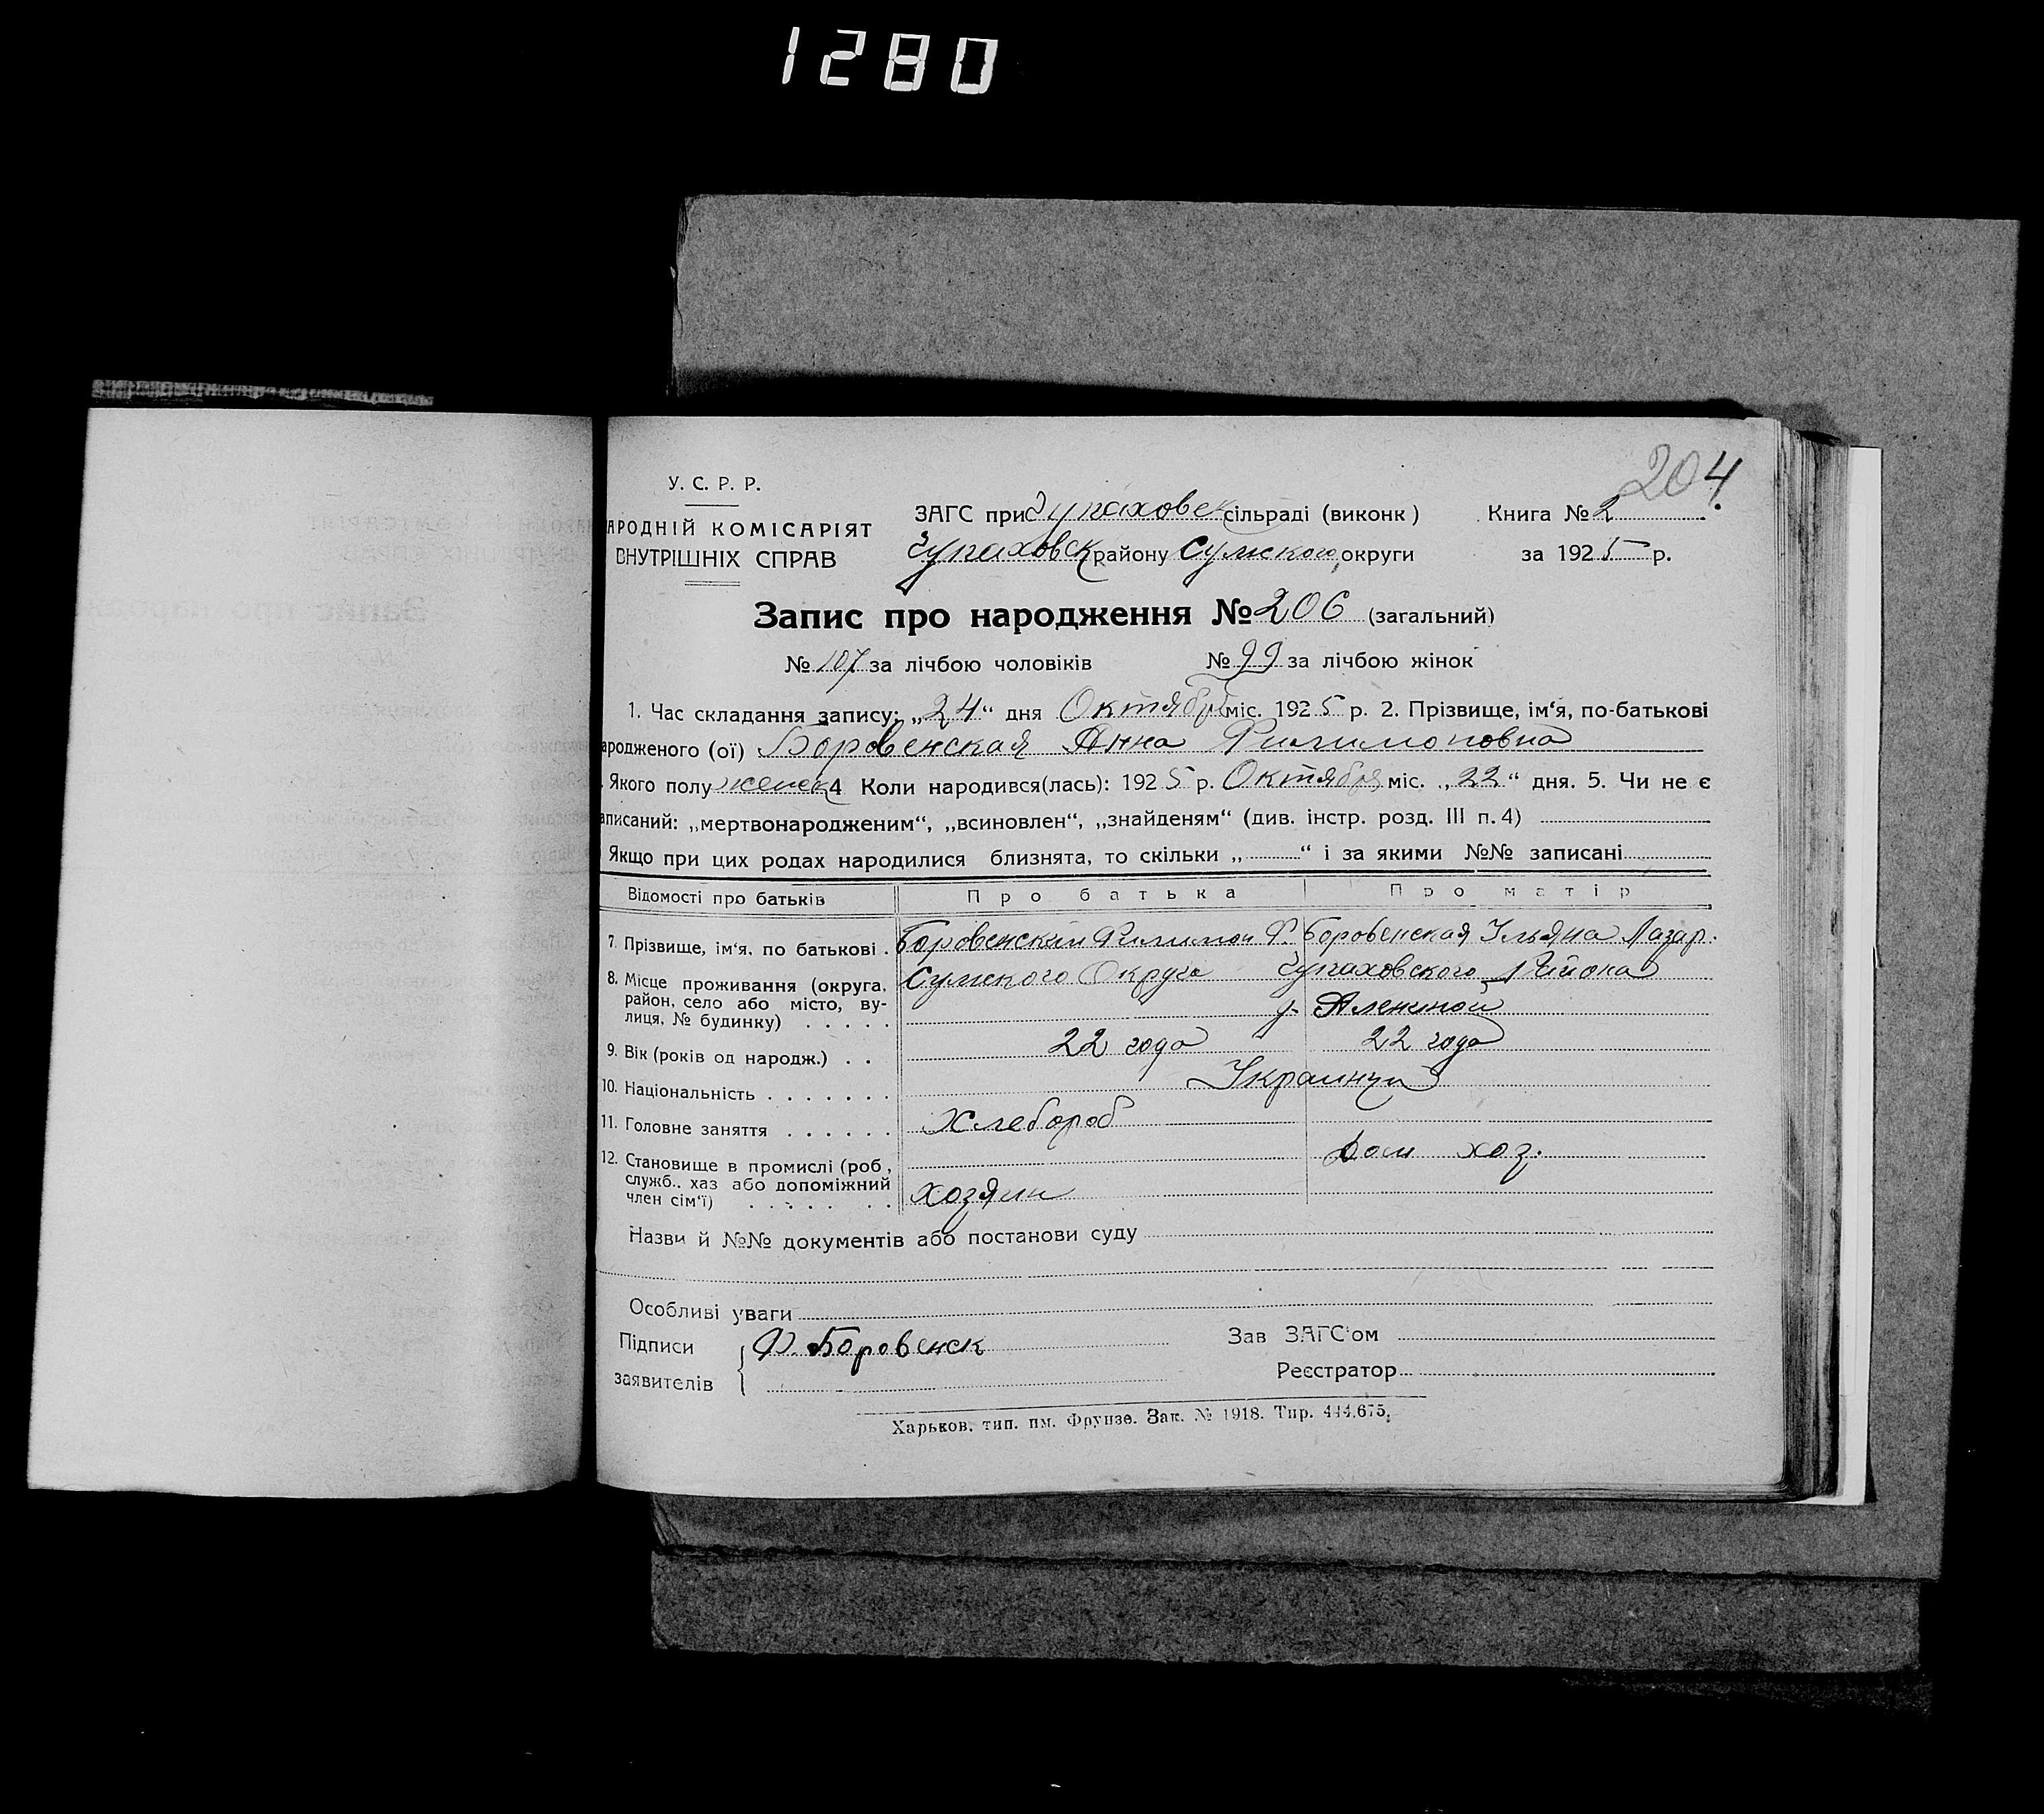 1280
204
У. С. Р. Р.
АРОДНІЙ КОМІСАРІЯТ
ВНУТРІШНІХ СПРАВ
ЗАГС при Чупаховск сільраді (виконк) Книга № 2
Чупаховск району Сумского округи за 1925 р.
Запис про народження № 206 (загальний)
№ 107 за лічбою чоловіків № 99 за лічбою жінок
1. Час складання запису: „24“ дня Октября міс. 1925 р. 2. Прізвище, ім‘я, по-батькові
ародженого (ої) Боровенская Анна Филимоновна
Якого полу женск 4 Коли народився(лась): 1925 р. Октября міс. „22“ дня. 5. Чи не є
аписаний: „мертвонародженим“, „всиновлен“, „знайденям“ (див. інстр. розд. III п. 4)
Якщо при цих родах народилися близнята, то скільки „ “ і за якими №№ записані
Відомості про батьків Про батька Про матір
7. Прізвище, ім‘я, по батькові . Боровенский Филимон Ф. Боровенская Ульяна Лазар.
8. Місце проживання (округа, Сумского Округа Чупаховского Района
район, село або місто, ву-
лиця, № будинку) . . . . . д.
9. Вік (років од народж.) . . 22 года 22 года
10. Національність . . . . . . . Украинци
11. Головне заняття . . . . . . Хлебороб
12. Становище в промислі (роб, Дом хоз.
служб.. хаз або допоміжний
член сім‘ї) . . . . . . . хозяин
Назви й №№ документів або постанови суду
Особливі уваги
Підписи Ф. Боровенск Зав ЗАГС‘ом
заявителів Реєстратор
Харьков, тип. им. Фрунзе. Зак. № 1918. Тир. 444.675.